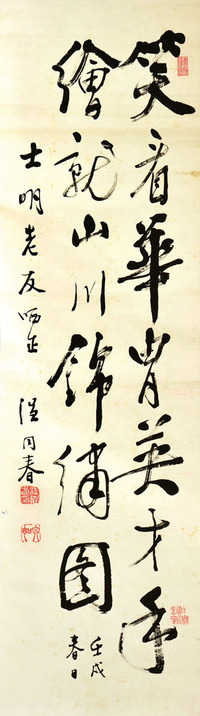 笑看華胄英才手
繪就山川錦繡圖
壬戌
春日
士明老友哂正
同春